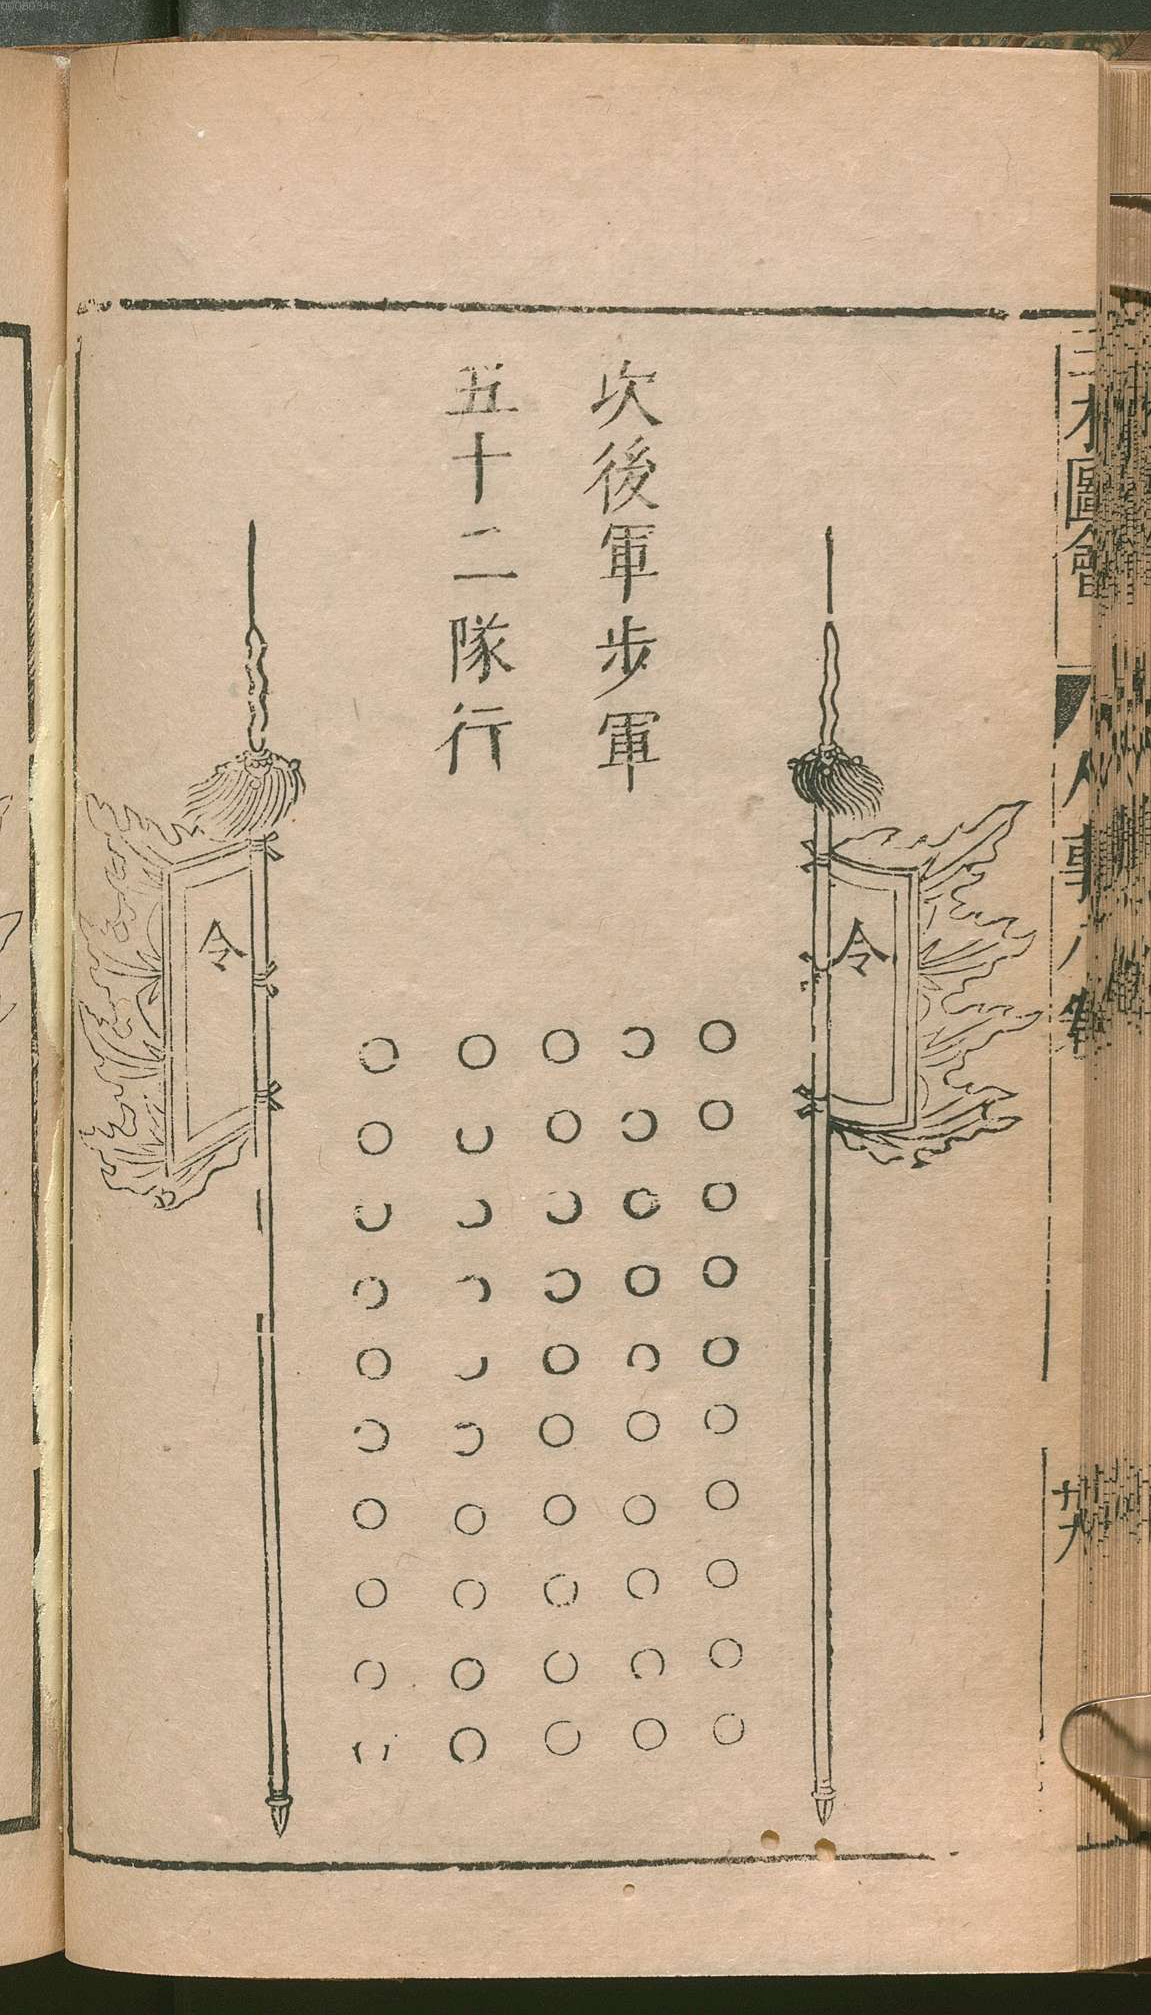 三才圖會
人事八卷
十九
次後軍步軍
五十二隊行
令
令